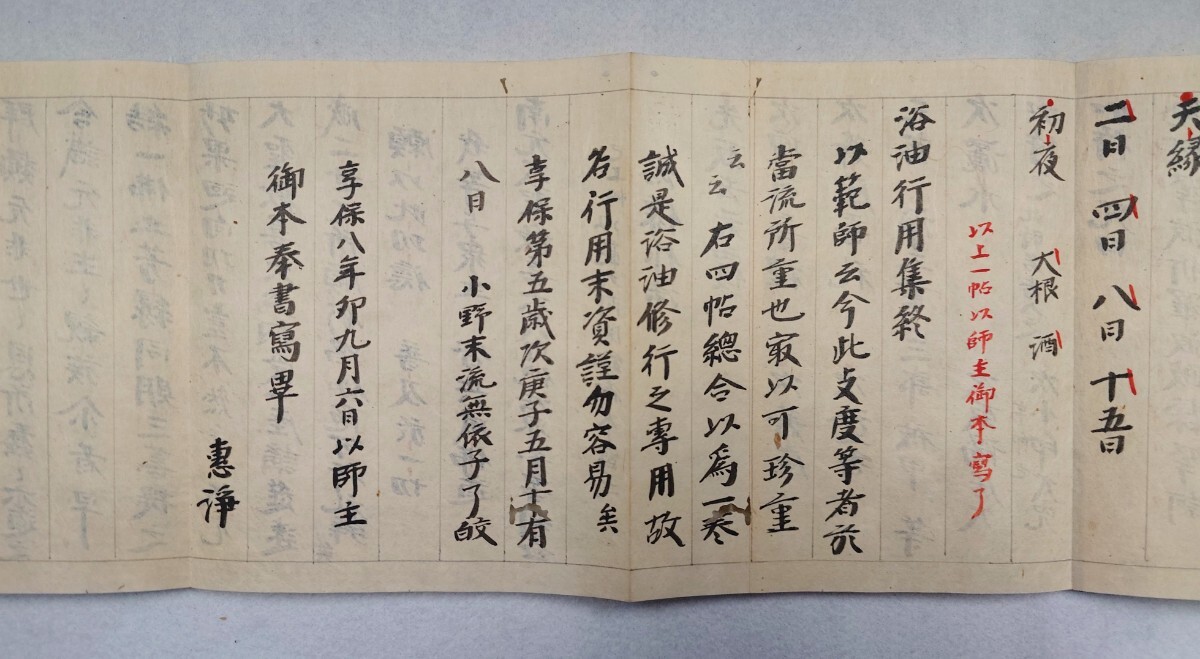 天縁
二日 四日 八日 十五日
初夜 大根 酒
以上一帖以師主御本寫了
浴油行用集終
以範師云今此支度等者於
當流所重也最以可珍重
云云 右四帖總合以為一巻
誠是浴油修行之専用故
名行用末資謹勿容易矣
享保第五歳次庚子五月十有
八日 小野末流無依子了皎
享保八年卯九月六日以師主
御本奉書寫畢
惠淨